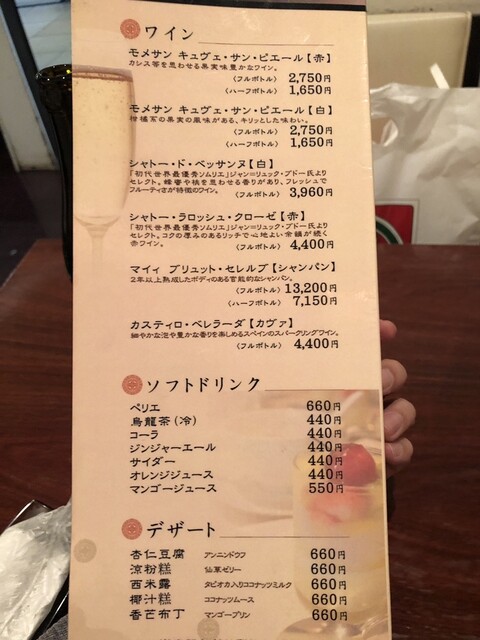 ワイン
モメサン キュヴェ・サン・ピエール【赤】
カシス等を思わせる果実味豊かなワイン。
〈フルボトル〉 2,750円
〈ハーフボトル〉 1,650円
モメサン キュヴェ・サン・ピエール【白】
柑橘系の果実の風味がある、キリッとした味わい。
〈フルボトル〉 2,750円
〈ハーフボトル〉 1,650円
シャトー・ド・ベッサンヌ【白】
「初代世界最優秀ソムリエ」ジャン=リュック・プトー氏より
セレクト。蜂蜜や桃を思わせる香りがあり、フレッシュで
フルーティさが特徴のワイン。 〈フルボトル〉 3,960円
シャトー・ラロッシュ・クローゼ【赤】
「初代世界最優秀ソムリエ」ジャン=リュック・プトー氏より
セレクト。コクの厚みのあるリッチで心地よい余韻が続く
赤ワイン。 〈フルボトル〉 4,400円
マイィ ブリュット・セレルブ【シャンパン】
2年以上熟成したボディのある官能的なシャンパン。
〈フルボトル〉 13,200円
〈ハーフボトル〉 7,150円
カスティロ・ペレラーダ【カヴァ】
細やかな泡や豊かな香りを楽しめるスペインのスパークリングワイン。
〈フルボトル〉 4,400円
ソフトドリンク
ペリエ 660円
烏龍茶(冷) 440円
コーラ 440円
ジンジャーエール 440円
サイダー 440円
オレンジジュース 440円
マンゴージュース 550円
デザート
杏仁豆腐 アンニンドウフ 660円
涼粉糕 仙草ゼリー 660円
西米露 タピオカ入りココナッツミルク 660円
椰汁糕 ココナッツムース 660円
香芒布丁 マンゴープリン 660円